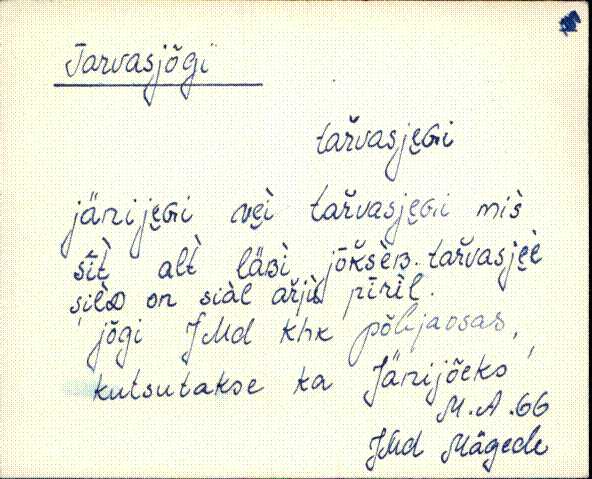 Tarvasjõgi
tar̆vasje̮Gi
jänije̮Gi ve̮i̬ tar̆vasje̮Gi mis̀
sīt̀ alt̀ läʙi jōk̆sèʙ. tar̆vasje̮è
silD on siàl ar̆jù pīrìl.
'jõgi JMd khk põhjaosas,
kutsutakse ka Jänijõeks'
M.A. 66
JMd Mägede